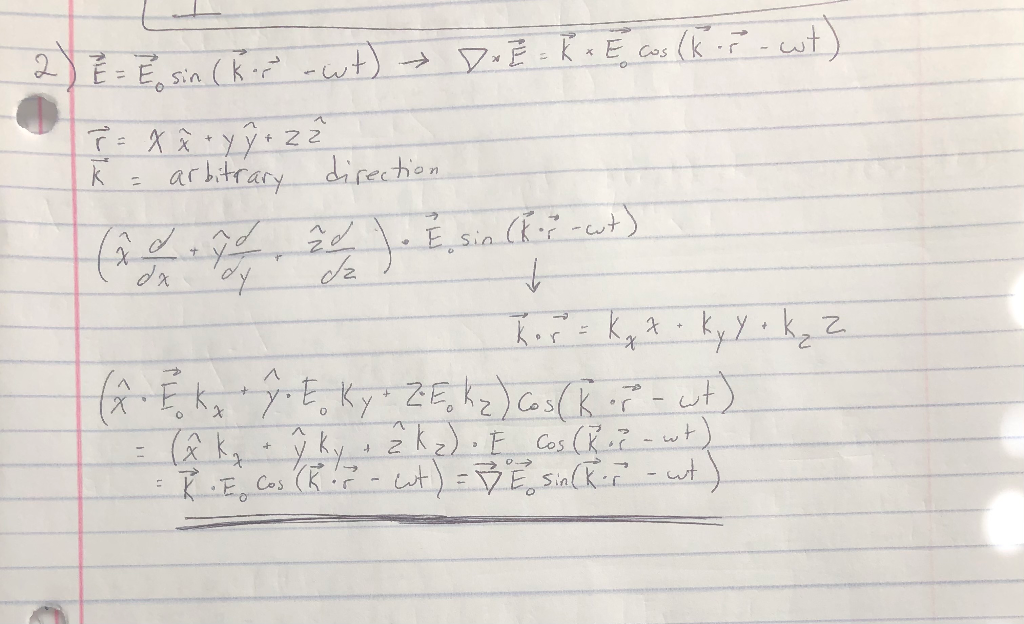 2) E⃗ = E⃗₀ sin (k⃗ · r⃗ - ωt) → ∇ × E⃗ = k⃗ × E⃗₀ cos (k⃗ · r⃗ - ωt)
r⃗ = x x̂ + y ŷ + z ẑ
k⃗ = arbitrary direction
(x̂ d/dx + ŷ d/dy + ẑ d/dz) · E⃗₀ sin (k⃗ · r⃗ - ωt)
↓
k⃗ · r⃗ = kₓ x + k_y y + k_z z
(x̂ · E⃗₀ kₓ + ŷ · E₀ k_y + z · E₀ k_z) cos (k⃗ · r⃗ - ωt)
= (x̂ kₓ + ŷ k_y + ẑ k_z) · E₀ cos (k⃗ · r⃗ - ωt)
= k⃗ · E₀ cos (k⃗ · r⃗ - ωt) = ∇⃗ · E⃗₀ sin (k⃗ · r⃗ - ωt)